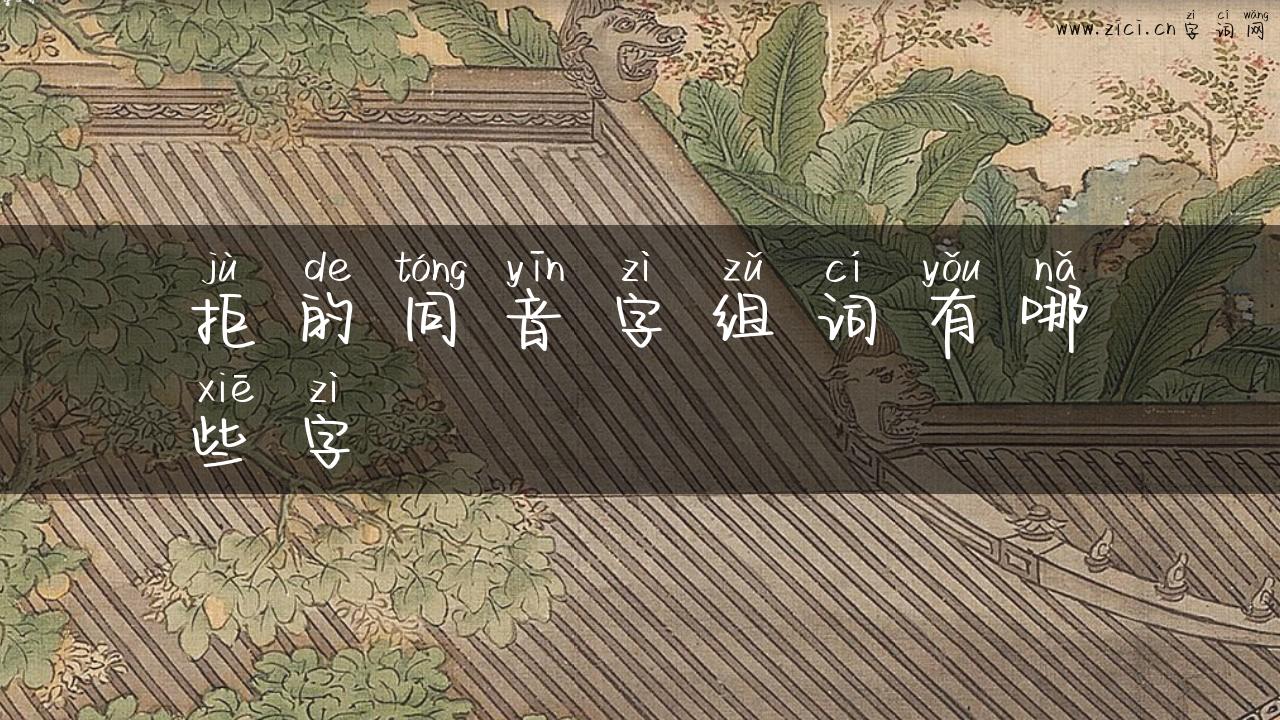 zì cí wǎng
www.zici.cn 字 词 网
jù de tóng yīn zì zǔ cí yǒu nǎ
拒 的 同 音 字 组 词 有 哪
xiē zì
些 字